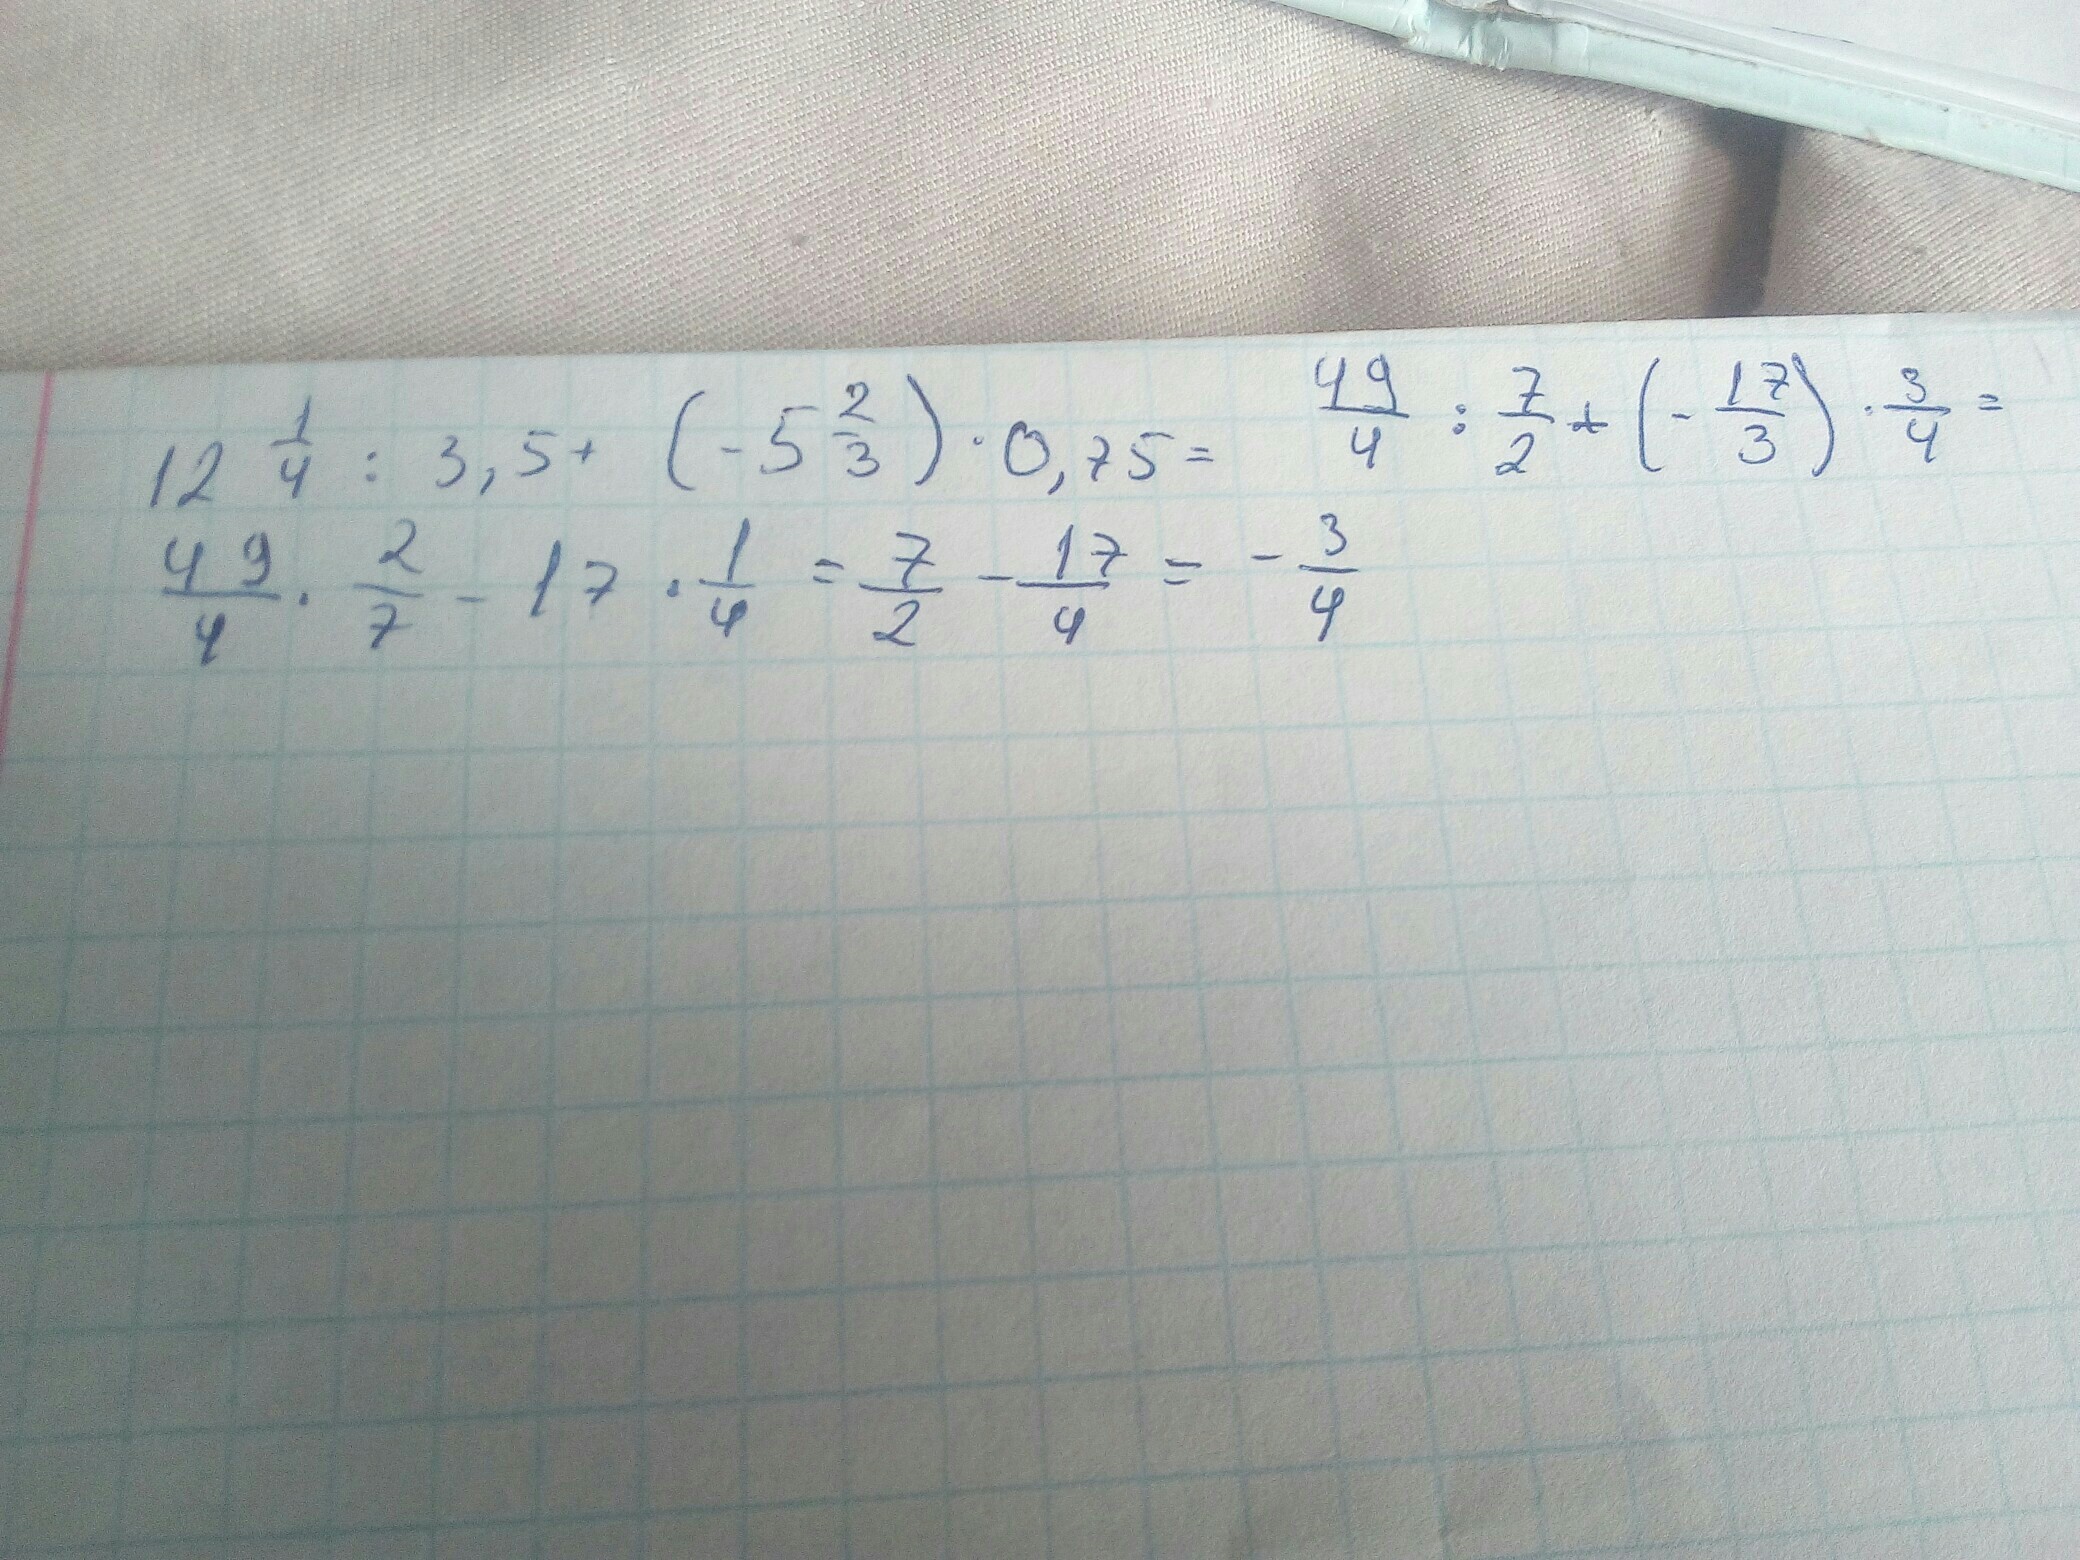 12 1/4 : 3,5 + (-5 2/3) · 0,75 = 49/4 : 7/2 + (-17/3) · 3/4 =
49/4 · 2/7 - 17 · 1/4 = 7/2 - 17/4 = -3/4